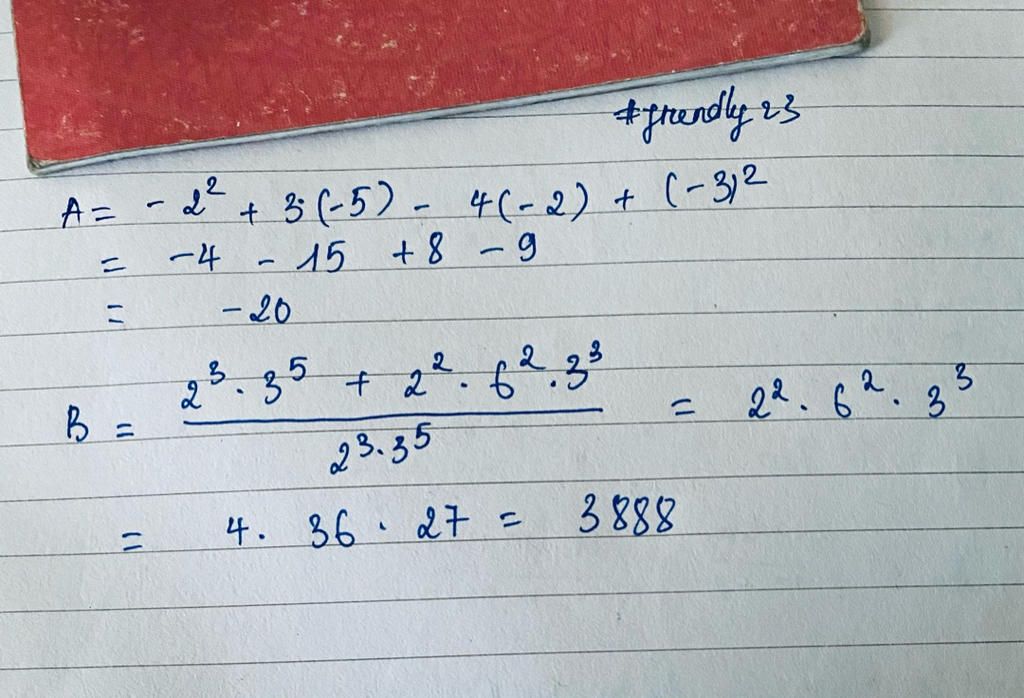 #friendly 23
A = - 2² + 3·(-5) - 4(-2) + (-3)²
= -4 - 15 + 8 - 9
= -20
B = (2³ · 3⁵ + 2² · 6² · 3³) / (2³ · 3⁵) = 2² · 6² · 3³
= 4 · 36 · 27 = 3888